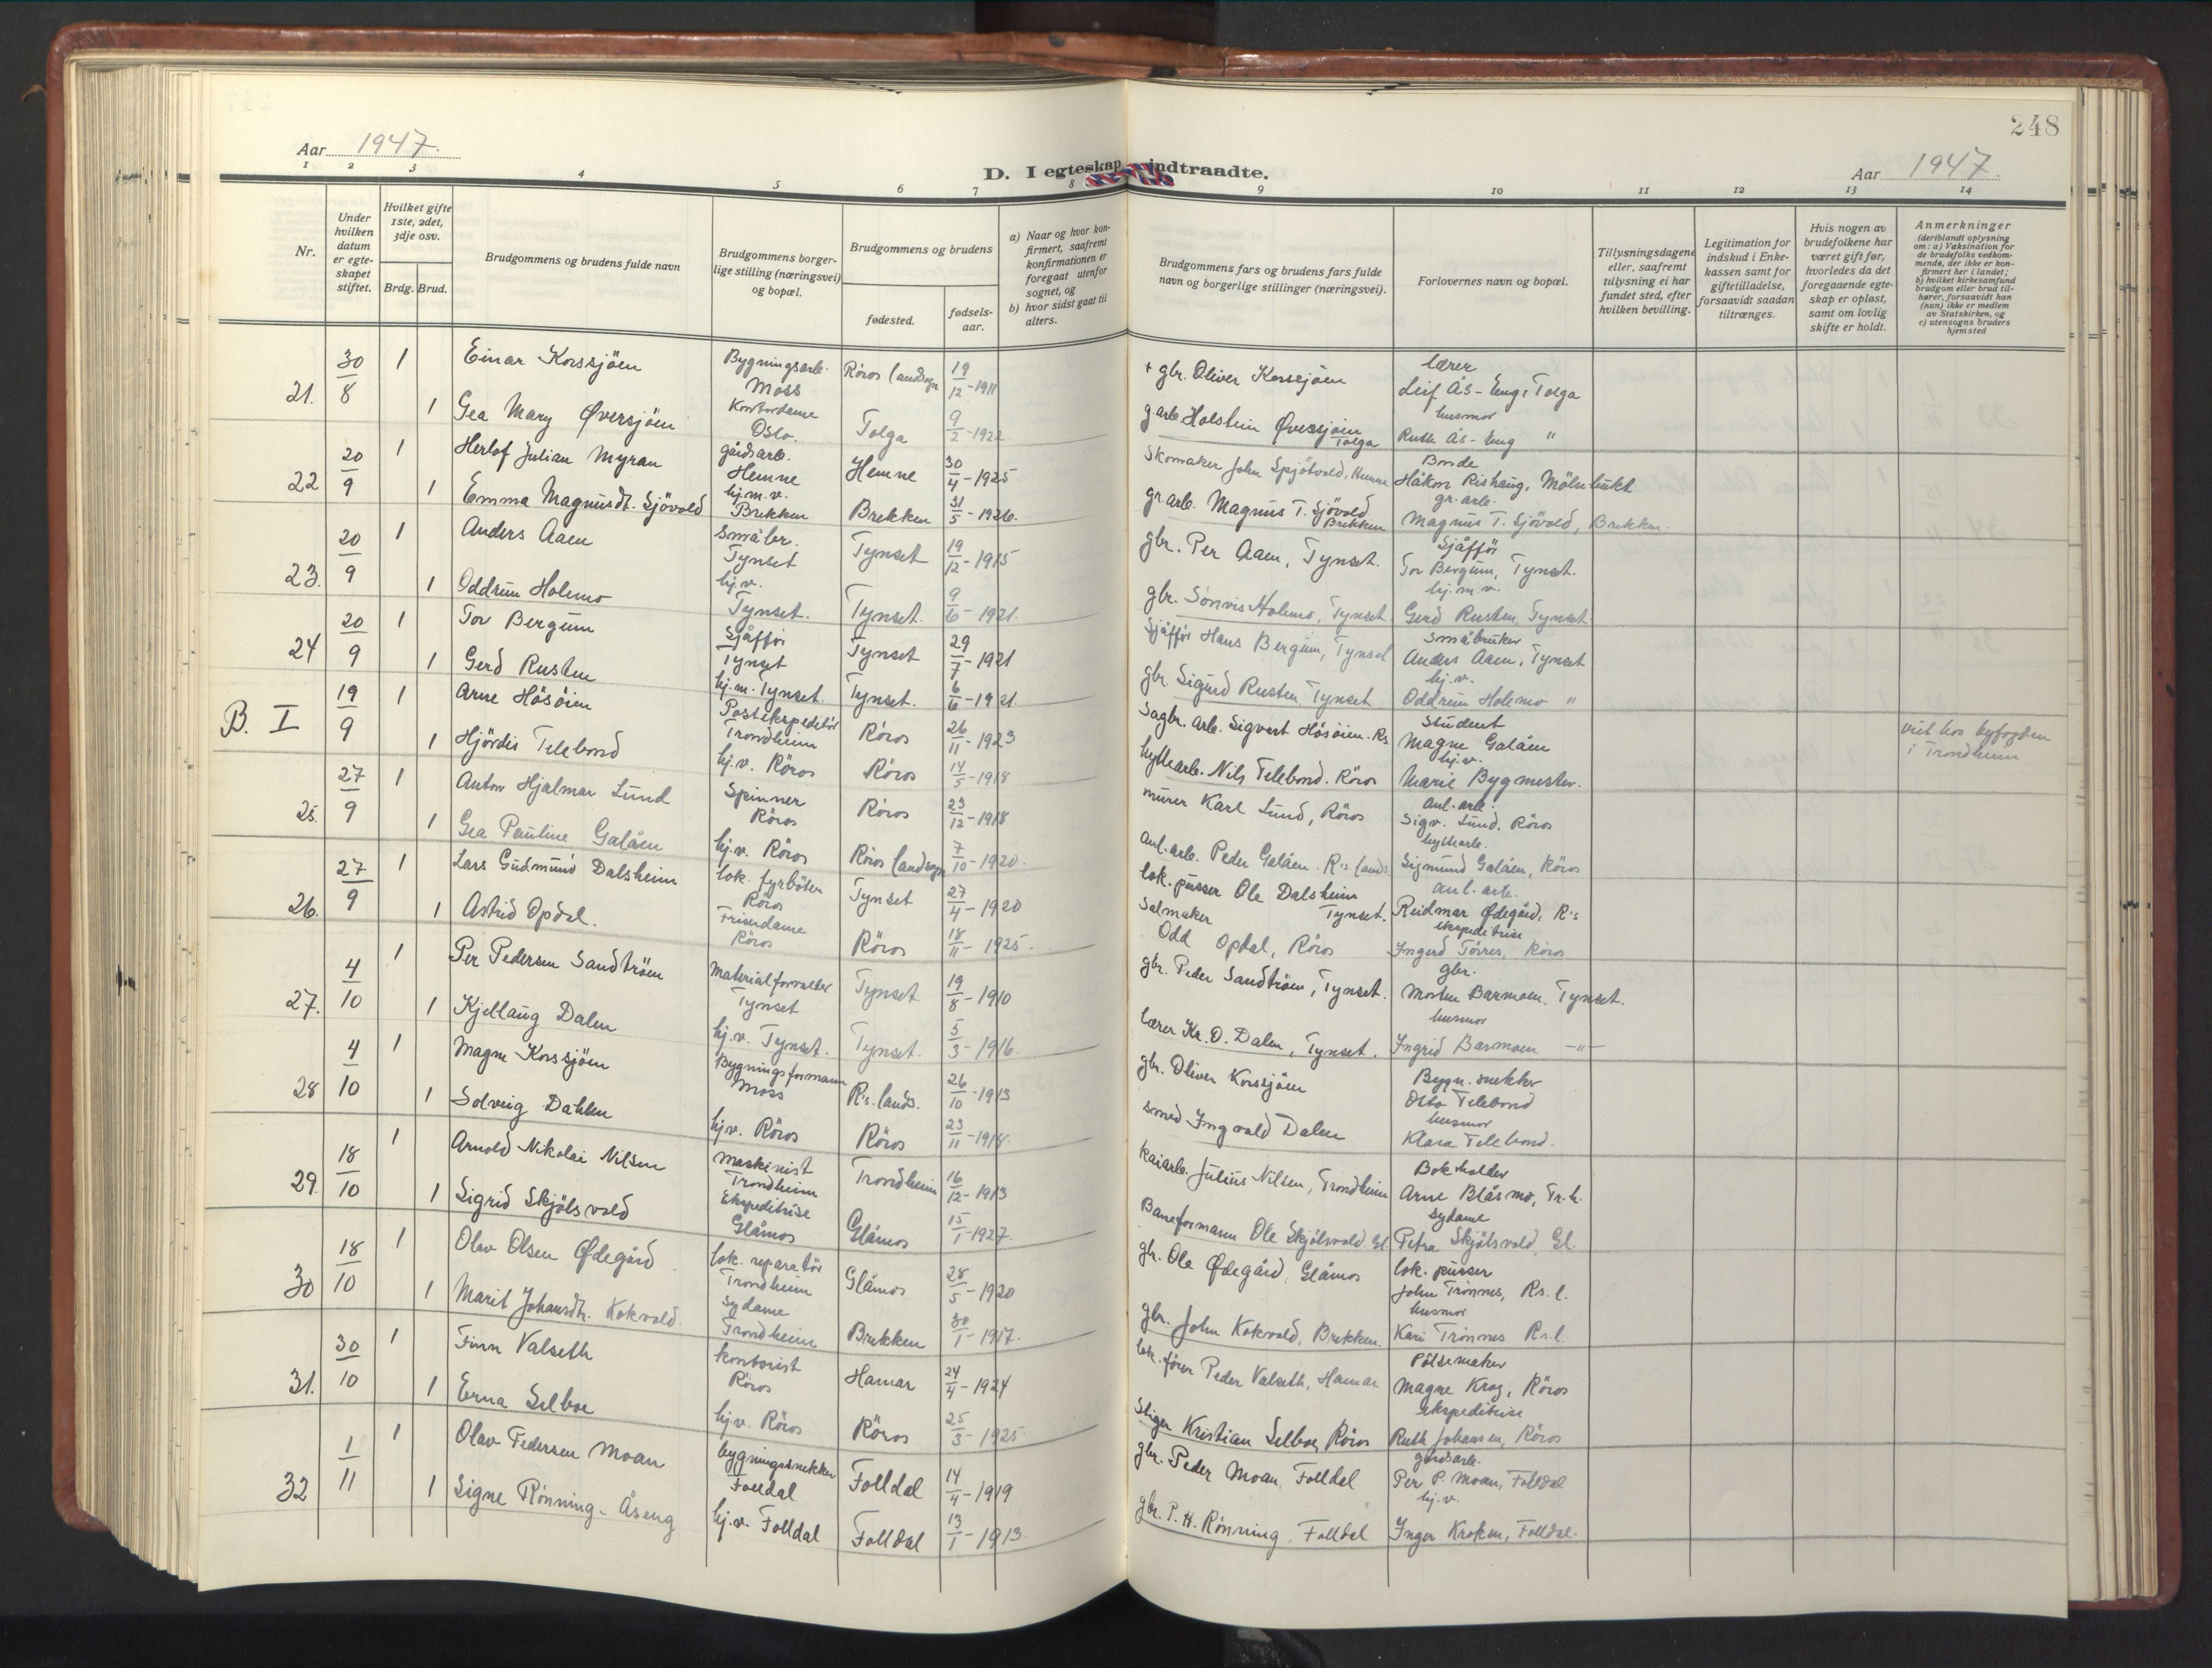 248
Aar 1947.
D. I egteskap indtraadte.
Aar 1947.
1 2 3 4 5 6 7 8 9 10 11 12 13 14
Nr.
Under hvilken datum er egteskapet stiftet.
Hvilket gifte 1ste, 2det, 3dje osv.
Brdg. Brud.
Brudgommens og brudens fulde navn
Brudgommens borgerlige stilling (næringsvei) og bopæl.
Brudgommens og brudens
fødested.
fødsels-aar.
a) Naar og hvor konfirmert, saafremt konfirmationen er foregaat utenfor sognet, og
b) hvor sidst gaat til alters.
Brudgommens fars og brudens fars fulde navn og borgerlige stillinger (næringsvei).
Forlovernes navn og bopæl.
Tillysningsdagene eller, saafremt tillysning ei har fundet sted, efter hvilken bevilling.
Legitimation for indskud i Enkekassen samt for giftetilladelse, forsaavidt saadan tiltrænges.
Hvis nogen av brudefolkene har været gift før, hvorledes da det foregaaende egteskap er opløst, samt om lovlig skifte er holdt.
Anmerkninger
(deriblandt oplysning om: a) Vaksination for de brudefolks vedkommende, der ikke er konfirmert her i landet; b) hvilket kirkesamfund brudgom eller brud tilhører, forsaavidt han (hun) ikke er medlem av Statskirken, og c) utensogns bruders hjemsted
21. 30/8 1 Einar Korssjöen Bygningsarb. Moss Röros landsogn 19/12-1911 + gbr. Oliver Korssjöen lærer Leif Ås-Eng, Tolga
1 Gea Mary Øversjöen Kontordame Oslo. Tolga 9/2-1922. g.arb. Holstein Øversjöen Tolga husmor Ruth Ås-Eng "
22 20/9 1 Herlof Julian Myran gårdsarb. Hemne Hemne 30/4-1925 Skomaker John Spjötvold, Hemne Bonde Håkon Rishaug, Mölnbukt
1 Emma Magnusdt. Sjövold hj.m.v. Brekken Brekken 31/5-1926. gr.arb. Magnus T. Sjövold Brekken gr.arb. Magnus T. Sjövold, Brekken.
23. 20/9 1 Anders Aaen Småbr. Tynset Tynset 19/12-1915 gbr. Per Aaen, Tynset. Sjåfför Tor Bergum, Tynset.
1 Oddrun Holemo hj.v. Tynset. Tynset. 9/6-1921. gbr. Sönvis Holemo, Tynset hj.m.v. Gerd Rusten, Tynset
24 20/9 1 Tor Bergum Sjåfför Tynset Tynset 29/7-1921 Sjåfför Hans Bergum, Tynset Småbruker Anders Aaen, Tynset
1 Gerd Rusten hj.m. Tynset. Tynset. 6/6-1921. gbr. Sigurd Rusten Tynset hj.v. Oddrun Holemo "
B. I 19/9 1 Arne Hösöien Postekspeditör Trondheim Röros 26/11-1923 Sagbr. arb. Sigvart Hösöien. Rs Student Magne Galåen viet hos byfogden i Trondheim
1 Hjördis Telebond hj.v. Röros Röros 14/5-1918 hyttearb. Nils Telebond. Röros hj.v. Marie Bygmester.
25. 27/9 1 Anton Hjalmar Lund Spinner Röros Röros 23/12-1918 murer Karl Lund, Röros anl.arb. Sigv. Lund, Röros
1 Gea Pauline Galåen hj.v. Röros Röros landsogn 7/10-1920. anl.arb. Peder Galåen. R's lands. hyttearb. Sigmund Galåen, Röros
26. 27/9 1 Lars Gudmund Dalsheim lok. fyrböter Röros Tynset 27/4-1920 lok. pusser Ole Dalsheim Tynset. anl. arb. Reidmar Ødegård, R's
1 Astrid Opdal. Friserdame Röros Röros 18/11-1925. Salmaker Odd Opdal, Röros ekspeditrise Ingerd Törres, Röros
27. 4/10 1 Per Pedersen Sandtröen Materialforvalter Tynset Tynset 19/8-1910 gbr. Peder Sandtröen, Tynset. gbr. Morten Barmoen. Tynset.
1 Kjellaug Dalen hj.v. Tynset. Tynset. 5/3-1916. lærer Kr. O. Dalen, Tynset. husmor Ingrid Barmoen -"-
28 4/10 1 Magne Korssjöen Bygningsformann Moss R's. lands. 26/10-1913 gbr. Oliver Korssjöen Bygn. snekker Otto Telebond
1 Solveig Dahlen hj.v. Röros Röros 23/11-1918. smed Ingvald Dalen husmor Klara Telebond.
29. 18/10 1 Arnold Nikolai Nilsen Maskinist Trondheim Trondheim 16/12-1913 Kaiarb. Julius Nilsen, Trondheim Bokholder Arne Blåsmo, Tr.h.
1 Sigrid Skjölsvold Ekspeditrise Glåmos Glåmos 15/1-1927. Baneformann Ole Skjölsvold. Gl. Sydame Petra Skjölsvold, Gl.
30 18/10 1 Olav Olsen Ødegård lok. reparatör Trondheim Glåmos 28/5-1920 gbr. Ole Ødegård, Glåmos lok. pusser John Trönnes, Rs. l.
1 Marit Johansdt. Kokvold. Sydame Trondheim Brekken 30/1-1917. gbr. John Kokvold, Brekken. husmor Kari Trönnes Rs. l.
31. 30/10 1 Finn Valseth kontorist Röros Hamar 24/4-1924 lok. förer Peder Valseth, Hamar Pölsemaker Magne Krog, Röros
1 Erna Selboe hj.v. Röros Röros 25/3-1925. Stiger Kristian Selboe, Röros ekspeditrise Ruth Johansen, Röros
32 1/11 1 Olav Pedersen Moan bygningssnekker Folldal Folldal 14/4-1919 gbr. Peder Moan, Folldal gårdsarb. Per P. Moan, Folldal
1 Signe Rönning-Åseng hj.v. Folldal Folldal 13/1-1913. gbr. P. H. Rönning, Folldal hj.v. Inger Kroken, Folldal.